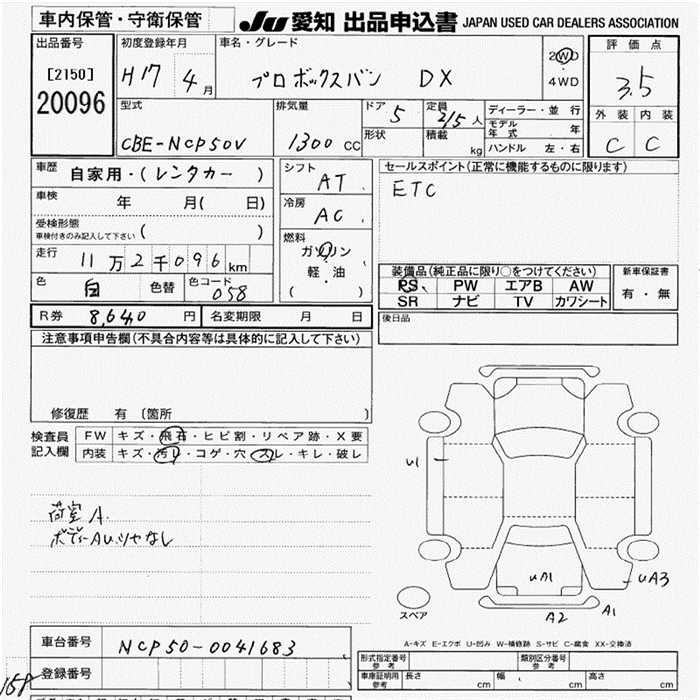 車内保管・守衛保管 JU 愛知 出品申込書 JAPAN USED CAR DEALERS ASSOCIATION
出品番号 初度登録年月 車名・グレード 評価点
[2150] H17 4月 プロボックスバン DX 2WD・4WD 3.5
20096
型式 排気量 ドア 定員 ディーラー・並行 外装 内装
CBE-NCP50V 1300cc 5 2/5人 モデル年式 年 C C
形状 積載 kg ハンドル 左・右
車歴 自家用・(レンタカー) シフト AT セールスポイント(正常に機能するものに限ります)
車検 年 月( 日) 冷房 AC ETC
受検形態
車検付きのみ記入して下さい ( )
走行 11万2千096km 燃料 ガソリン・軽油 ( )
装備品(純正品に限り○をつけてください) 新車保証書
色 白 色替 色コード 058 PS PW エアB AW 有・無
SR ナビ TV カワシート
R券 8,640円 名変期限 月 日 後日品
注意事項申告欄(不具合内容等は具体的に記入して下さい)
修復歴 有 [箇所 ]
検査員記入欄 FW キズ・飛石・ヒビ割・リペア跡・X要
内装 キズ・汚レ・コゲ・穴・スレ・キレ・破レ
U1
荷室A.
ボディーAUツヤなし
UA1 UA3
スペア A2 A1
A-キズ E-エクボ U-凹み W-補修跡 S-サビ C-腐食 XX-交換済
車台番号 NCP50-0041683
登録番号
形式指定番号 参考 類別区分番号 参考
車庫証明用 参考 長さ cm 幅 cm 高さ cm